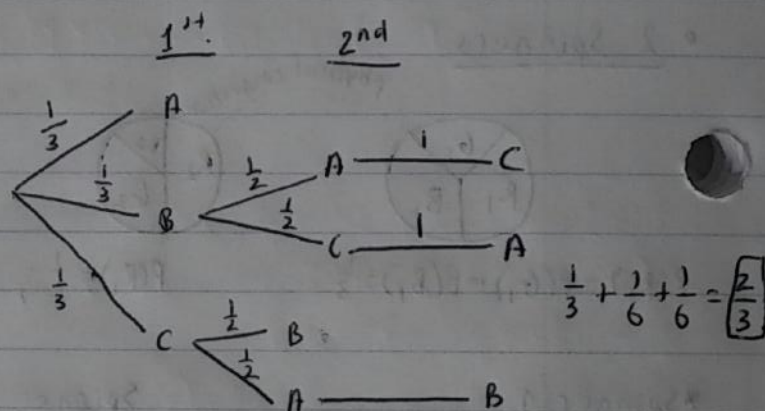 1st. 2nd
1/3 A
1/3 B 1/2 A 1 C
1/2 C 1 A
1/3 C 1/2 B
1/2 A B
1/3 + 1/6 + 1/6 = 2/3